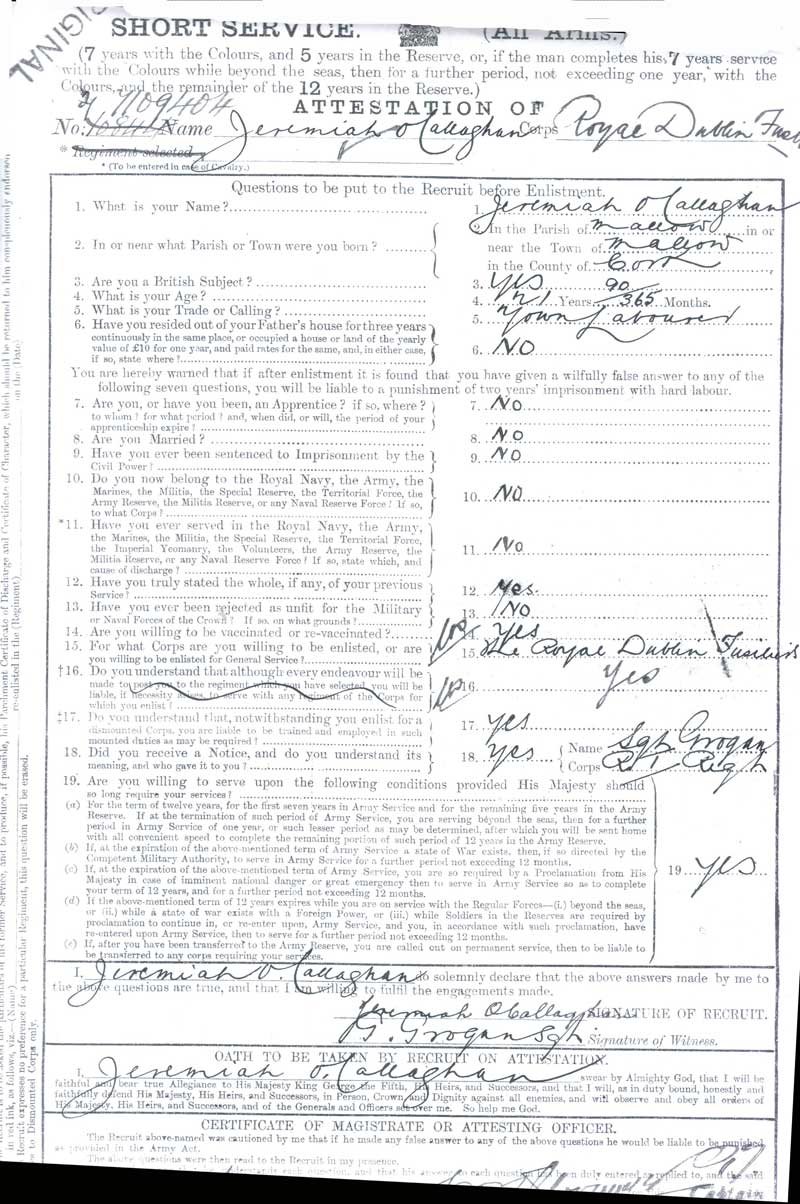 ORIGINAL
SHORT SERVICE. (All Arms.)
(7 years with the Colours, and 5 years in the Reserve, or, if the man completes his 7 years service
with the Colours while beyond the seas, then for a further period, not exceeding one year, with the
Colours, and the remainder of the 12 years in the Reserve.)
ATTESTATION OF
No. Name Jeremiah O Callaghan Corps Royal Dublin Fus
* Regiment selected
* (To be entered in case of Cavalry.)
Questions to be put to the Recruit before Enlistment.
1. What is your Name? 1. Jeremiah O Callaghan
2. In or near what Parish or Town were you born? 2. In the Parish of Mallow in or
near the Town of Mallow
in the County of Cork
3. Are you a British Subject? 3. Yes
4. What is your Age? 4. Years 365 Months.
5. What is your Trade or Calling? 5. Labourer
6. Have you resided out of your Father's house for three years
continuously in the same place, or occupied a house or land of the yearly
value of £10 for one year, and paid rates for the same, and, in either case,
if so, state where? 6. NO
You are hereby warned that if after enlistment it is found that you have given a wilfully false answer to any of the
following seven questions, you will be liable to a punishment of two years' imprisonment with hard labour.
7. Are you, or have you been, an Apprentice? if so, where? 7. No
to whom? for what period? and, when did, or will, the period of your
apprenticeship expire?
8. Are you Married? 8. No
9. Have you ever been sentenced to Imprisonment by the 9. NO
Civil Power?
10. Do you now belong to the Royal Navy, the Army, the
Marines, the Militia, the Special Reserve, the Territorial Force, the
Army Reserve, the Militia Reserve, or any Naval Reserve Force? If so,
to what Corps? 10. NO
*11. Have you ever served in the Royal Navy, the Army,
the Marines, the Militia, the Special Reserve, the Territorial Force,
the Imperial Yeomanry, the Volunteers, the Army Reserve, the
Militia Reserve, or any Naval Reserve Force? If so, state which, and
cause of discharge? 11. No
12. Have you truly stated the whole, if any, of your previous
Service? 12. Yes.
13. Have you ever been rejected as unfit for the Military
or Naval Forces of the Crown? If so, on what grounds? 13. NO
14. Are you willing to be vaccinated or re-vaccinated? 14. Yes
15. For what Corps are you willing to be enlisted, or are
you willing to be enlisted for General Service? 15. The Royal Dublin Fusiliers
†16. Do you understand that although every endeavour will be
made to post you to the regiment which you have selected, you will be
liable, if necessity arises, to serve with any regiment of the Corps for
which you enlist? 16. Yes
‡17. Do you understand that, notwithstanding you enlist for a
dismounted Corps, you are liable to be trained and employed in such
mounted duties as may be required? 17. Yes
18. Did you receive a Notice, and do you understand its
meaning, and who gave it to you? 18. Yes Name Sgt Grogan
Corps
19. Are you willing to serve upon the following conditions provided His Majesty should
so long require your services?
(a) For the term of twelve years, for the first seven years in Army Service and for the remaining five years in the Army
Reserve. If at the termination of such period of Army Service, you are serving beyond the seas, then for a further
period in Army Service of one year, or such lesser period as may be determined, after which you will be sent home
with all convenient speed to complete the remaining portion of such period of 12 years in the Army Reserve.
(b) If, at the expiration of the above-mentioned term of Army Service a state of War exists, then, if so directed by the
Competent Military Authority, to serve in Army Service for a further period not exceeding 12 months.
(c) If, at the expiration of the above-mentioned term of Army Service, you are so required by a Proclamation from His
Majesty in case of imminent national danger or great emergency then to serve in Army Service so as to complete
your term of 12 years, and for a further period not exceeding 12 months. 19 Yes
(d) If the above-mentioned term of 12 years expires while you are on service with the Regular Forces—(i.) beyond the seas,
or (ii.) while a state of war exists with a Foreign Power, or (iii.) while Soldiers in the Reserves are required by
proclamation to continue in, or re-enter upon, Army Service, and you, in accordance with such proclamation, have
re-entered upon Army Service, then to serve for a further period not exceeding 12 months.
(e) If, after you have been transferred to the Army Reserve, you are called out on permanent service, then to be liable to
be transferred to any corps requiring your services.
I, Jeremiah O. Callaghan do solemnly declare that the above answers made by me to
the above questions are true, and that I am willing to fulfil the engagements made.
Jeremiah O Callaghan SIGNATURE OF RECRUIT.
G. Grogan Sgt Signature of Witness.
OATH TO BE TAKEN BY RECRUIT ON ATTESTATION.
I, Jeremiah O. Callaghan swear by Almighty God, that I will be
faithful and bear true Allegiance to His Majesty King George the Fifth, His Heirs, and Successors, and that I will, as in duty bound, honestly and
faithfully defend His Majesty, His Heirs, and Successors, in Person, Crown and Dignity against all enemies, and will observe and obey all orders of
His Majesty, His Heirs, and Successors, and of the Generals and Officers set over me. So help me God.
CERTIFICATE OF MAGISTRATE OR ATTESTING OFFICER.
The Recruit above-named was cautioned by me that if he made any false answer to any of the above questions he would be liable to be punished
as provided in the Army Act.
The above questions were then read to the Recruit in my presence.